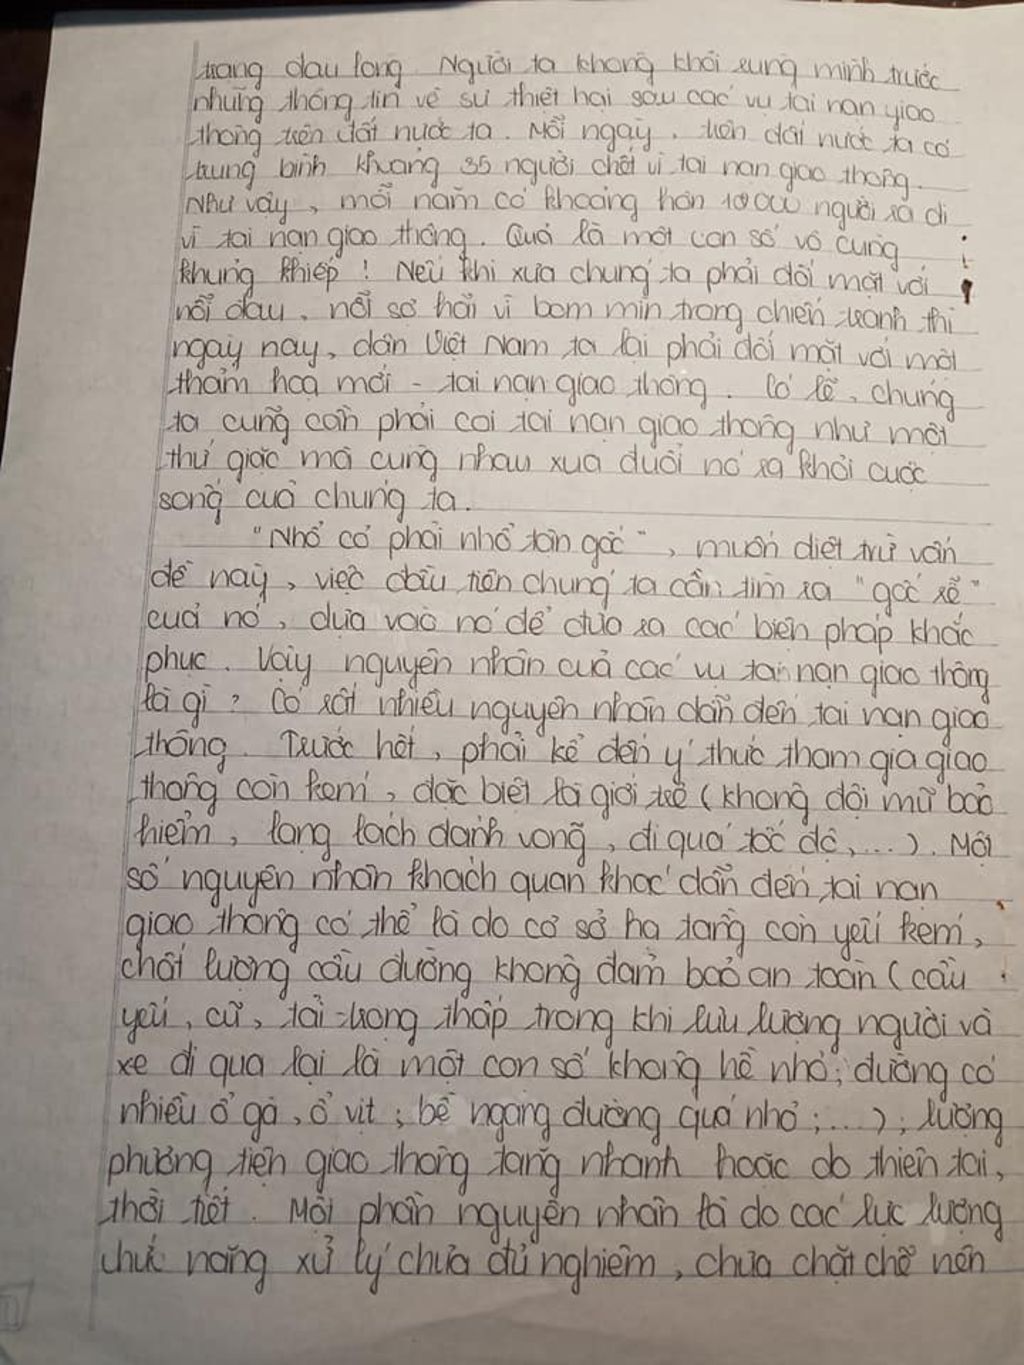 trạng đau lòng. Người ta không khỏi rùng mình trước
những thông tin về sự thiệt hại sau các vụ tai nạn giao
thông trên đất nước ta. Mỗi ngày, trên đất nước ta có
trung bình khoảng 35 người chết vì tai nạn giao thông.
Như vậy, mỗi năm có khoảng hơn 10000 người ra đi
vì tai nạn giao thông. Quả là một con số vô cùng
khủng khiếp! Nếu khi xưa chúng ta phải đối mặt với
nỗi đau, nỗi sợ hãi vì bom mìn trong chiến tranh thì
ngày nay, dân Việt Nam ta lại phải đối mặt với một
thảm họa mới - tai nạn giao thông. Có lẽ, chúng
ta cũng cần phải coi tai nạn giao thông như một
thứ giặc mà cùng nhau xua đuổi nó ra khỏi cuộc
sống của chúng ta.
"Nhổ cỏ phải nhổ tận gốc", muốn diệt trừ vấn
đề này, việc đầu tiên chúng ta cần tìm ra "gốc rễ"
của nó, dựa vào nó để đưa ra các biện pháp khắc
phục. Vậy nguyên nhân của các vụ tai nạn giao thông
là gì? Có rất nhiều nguyên nhân dẫn đến tai nạn giao
thông. Trước hết, phải kể đến ý thức tham gia giao
thông còn kém, đặc biệt là giới trẻ (không đội mũ bảo
hiểm, lạng lách đánh võng, đi quá tốc độ,...). Một
số nguyên nhân khách quan khác dẫn đến tai nạn
giao thông có thể là do cơ sở hạ tầng còn yếu kém,
chất lượng cầu đường không đảm bảo an toàn (cầu
yếu, cũ, tải trọng thấp trong khi lưu lượng người và
xe đi qua lại là một con số không hề nhỏ; đường có
nhiều ổ gà, ổ vịt; bề ngang đường quá nhỏ;...); lượng
phương tiện giao thông tăng nhanh hoặc do thiên tai,
thời tiết. Một phần nguyên nhân là do các lực lượng
chức năng xử lý chưa đủ nghiêm, chưa chặt chẽ nên